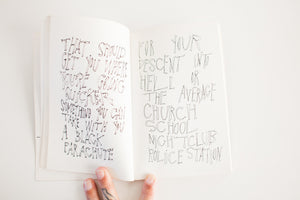 THAT SHOULD
GET YOU WHERE
YOU'RE GOING
SOMETHING YOU CAN
TAKE WITH YOU
A BLACK
PARACHUTE
FOR YOUR
DESCENT INTO
HELL
OR AVERAGE
THE
CHURCH
SCHOOL
NIGHTCLUB
POLICE STATION